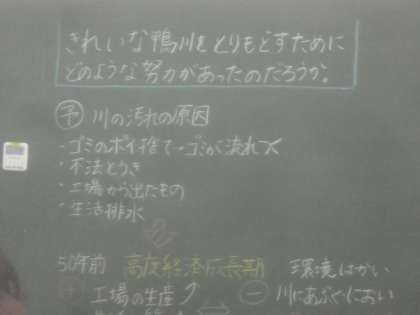 きれいな鴨川をとりもどすために
どのような努力があったのだろうか。
予 川の汚れの原因
・ゴミのポイ捨て→ゴミが流れ
・不法とうき
・工場から出たもの
・生活排水
50年前 高度経済成長期 環境はかい
＋ 工場の生産↑ ⇔ － 川にあぶくにおい